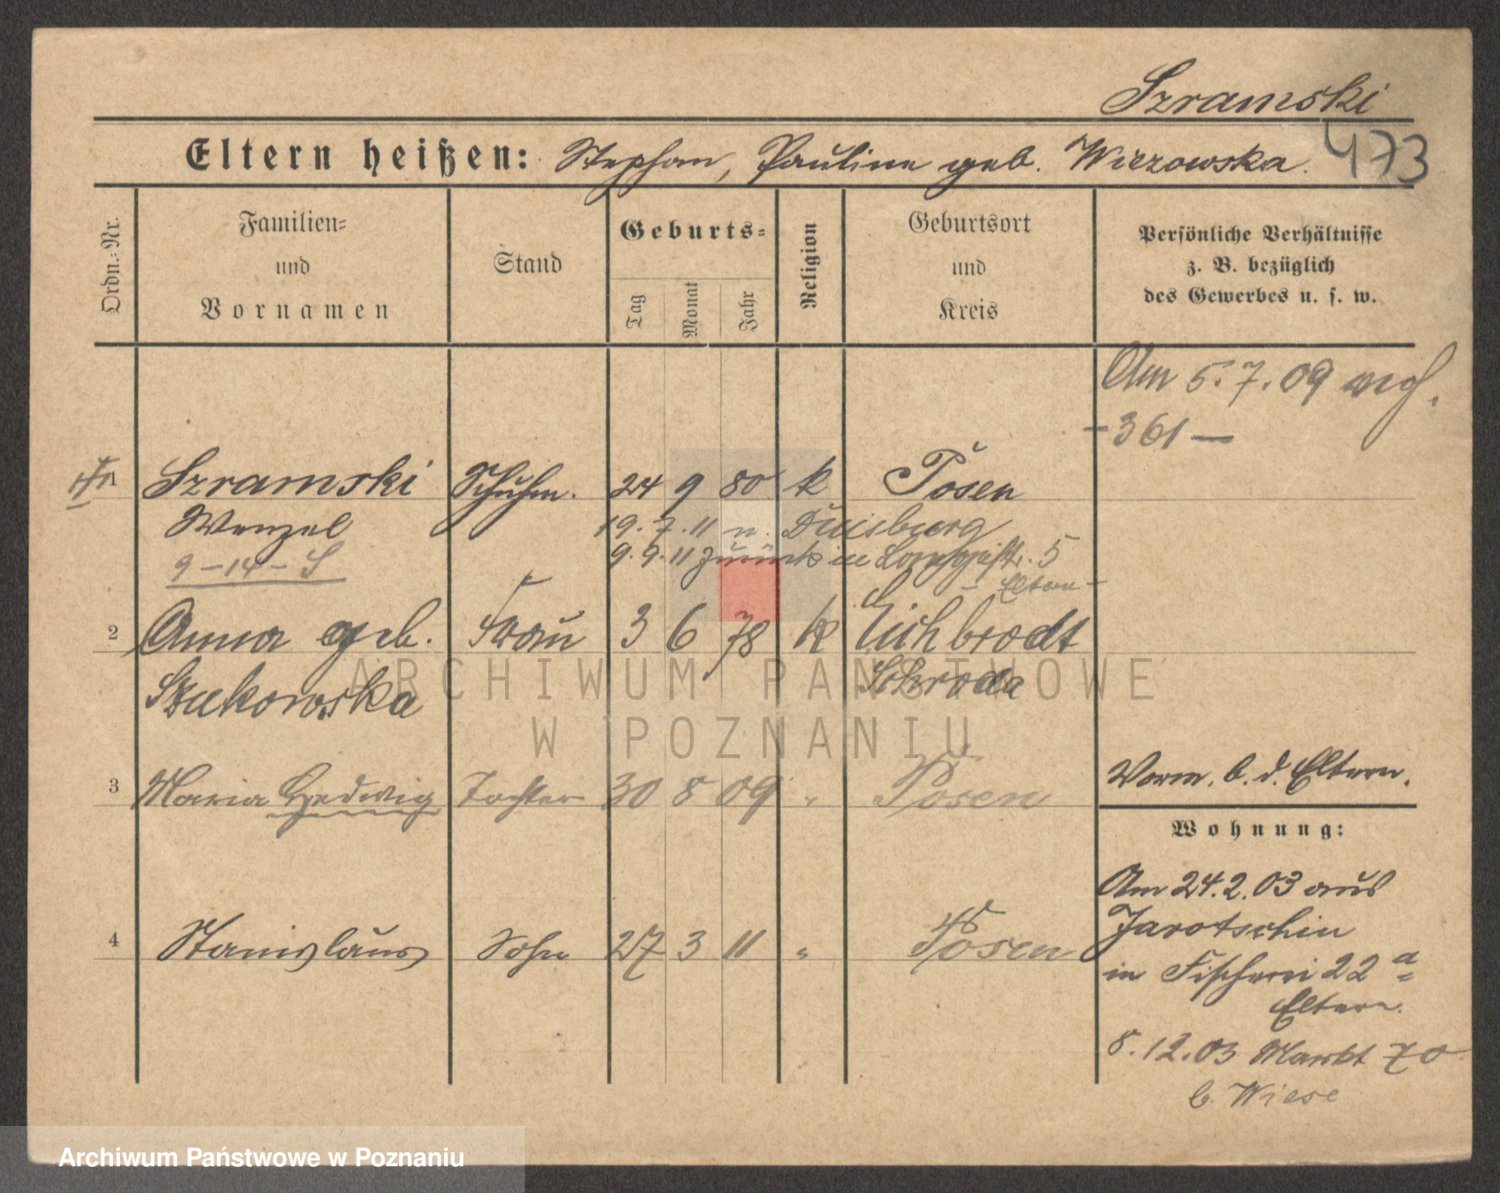 Szramski
Eltern heißen: Stephan, Pauline geb. Wierzowska.
473
Ordn.-Nr.
Familien-
und
Vornamen
Stand
Geburts-
Tag
Monat
Jahr
Religion
Geburtsort
und
Kreis
Persönliche Verhältnisse
z. B. bezüglich
des Gewerbes u. s. w.
Am 5.7.09
-361-
1 Szramski Schuhm. 24 9 80 k Posen
Wenzel 19.7.11 n. Duisburg
9.9.11 zurück in 5
9-14-S - Eltern -
2 Anna geb. Frau 3 6 78 k Eichbrodt
Szukowska Schroda
3 Maria Hedwig Tochter 30 8 09 " Posen
Vorm. b. d. Eltern.
Wohnung:
4 Stanislaus Sohn 27 3 11 " Posen
Am 24.2.03 aus
Jarotschin
in Fischerei 22 a
Eltern.
8.12.03 Markt 70
b. Wiese
ARCHIWUM PAŃSTWOWE
W POZNANIU
Archiwum Państwowe w Poznaniu